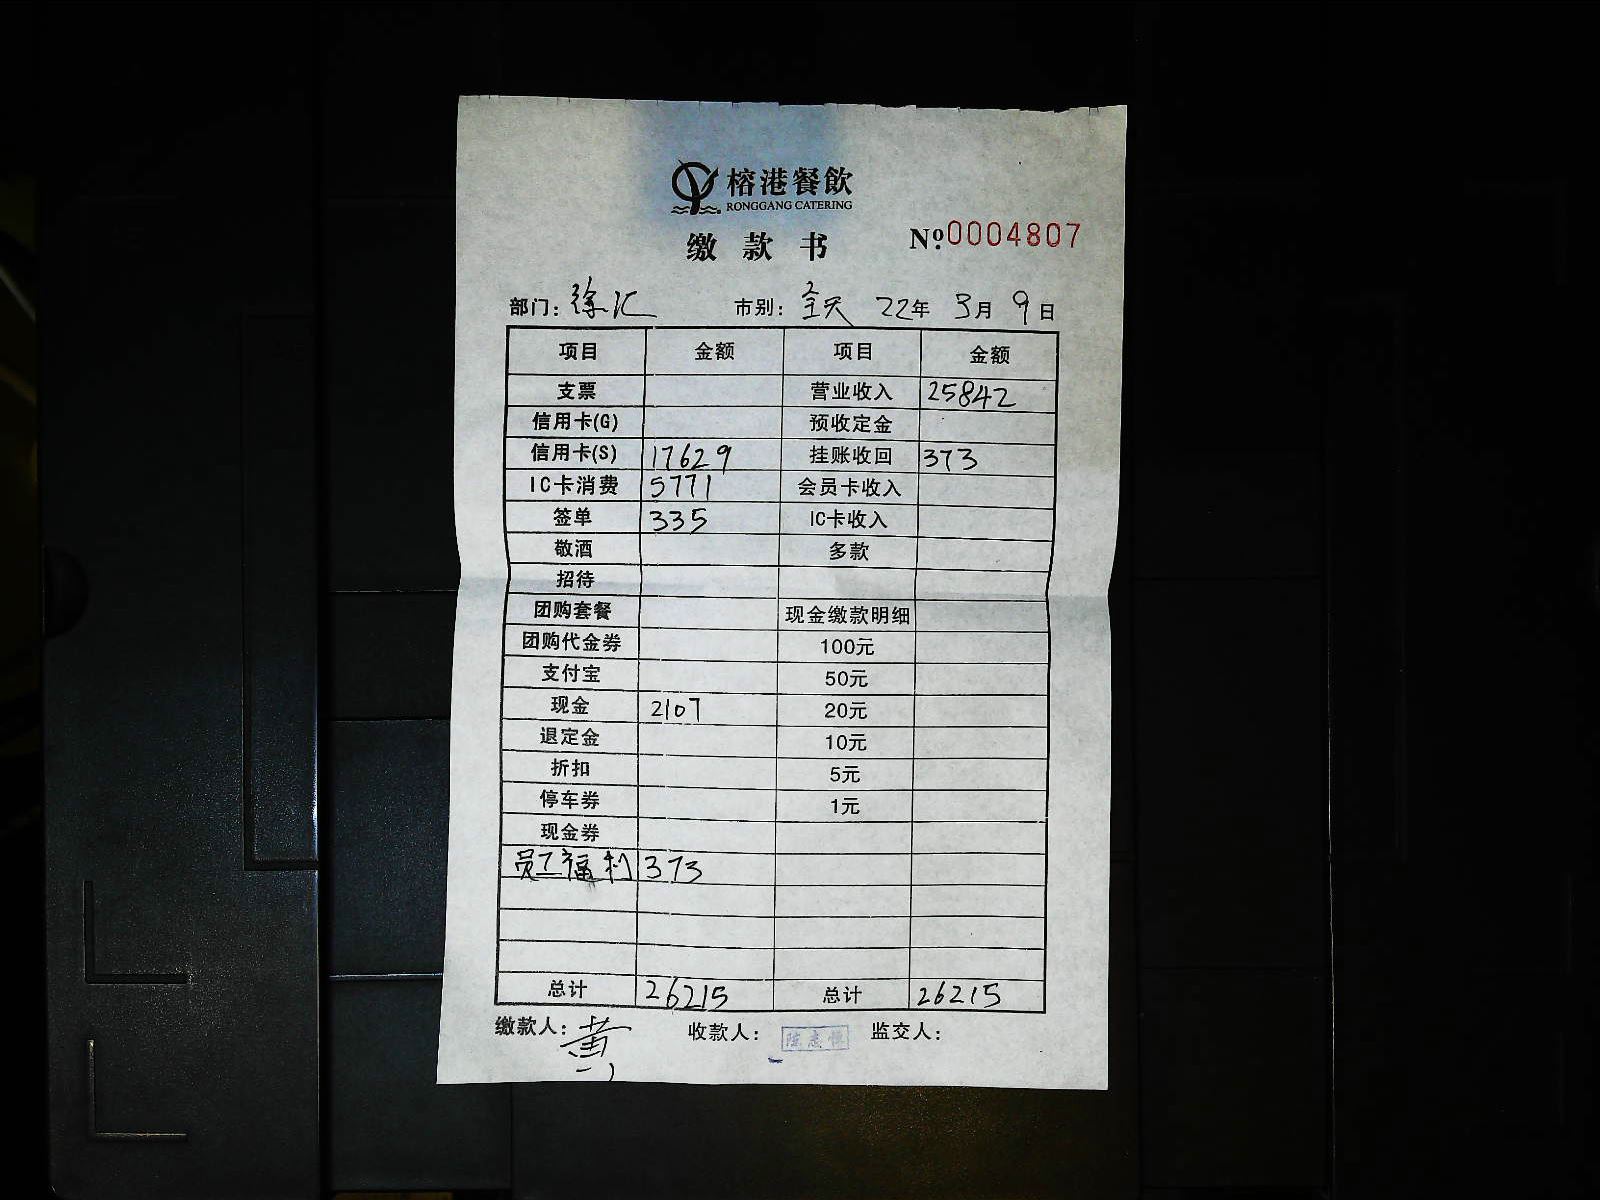 榕港餐飲
RONGGANG CATERING
缴款书 Nº:0004807
部门:徐汇 市别:全天 22年 3月 9日
项目 金额 项目 金额
支票 营业收入 25842
信用卡(G) 预收定金
信用卡(S) 17629 挂账收回 373
IC卡消费 5771 会员卡收入
签单 335 IC卡收入
敬酒 多款
招待
团购套餐 现金缴款明细
团购代金券 100元
支付宝 50元
现金 2107 20元
退定金 10元
折扣 5元
停车券 1元
现金券
员工福利 373
总计 26215 总计 26215
缴款人:黄 收款人: 监交人: